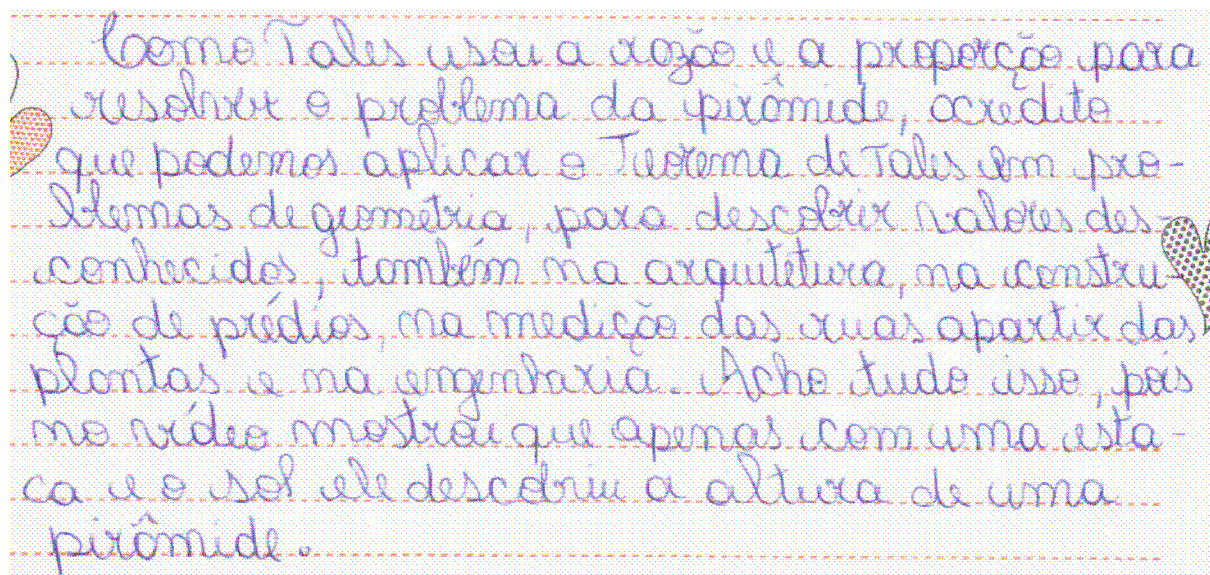 Como Tales usou a razão e a proporção para
resolver o problema da pirâmide, acredito
que podemos aplicar o Teorema de Tales em pro-
blemas de geometria, para descobrir valores des-
conhecidos, também na arquitetura, na constru-
ção de prédios, na medição das ruas apartir das
plantas e na engenharia. Acho tudo isso, pois
no vídeo mostrou que apenas com uma esta-
ca e o sol ele descobriu a altura de uma
pirâmide.